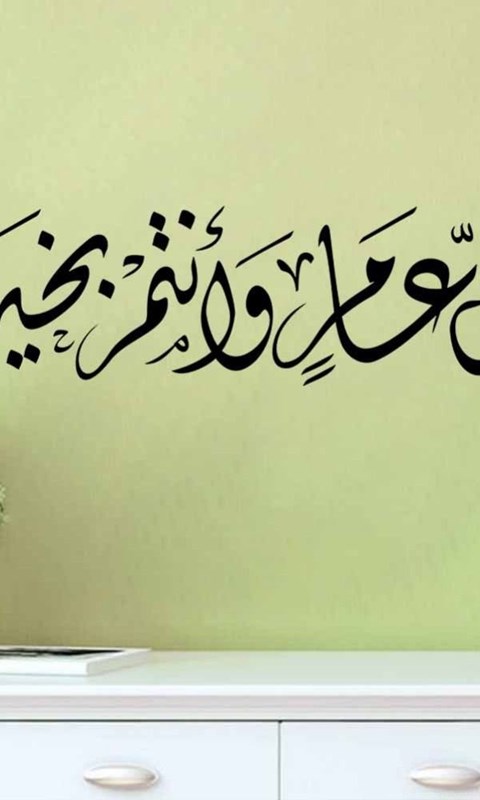 كلّ عامٍ وأنتم بخير